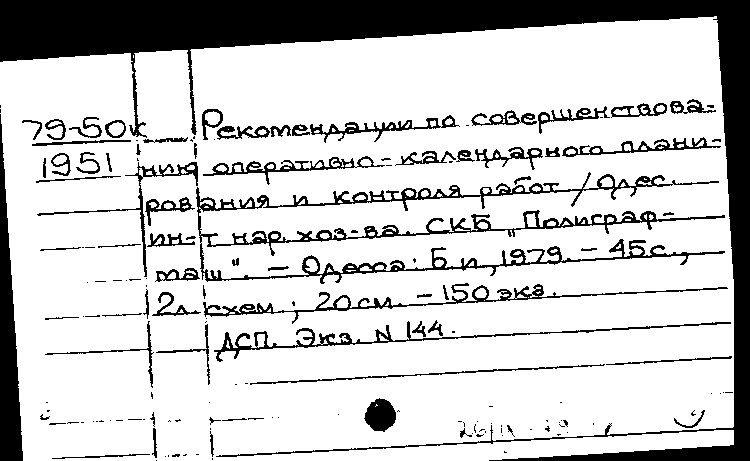 79-50к Рекомендации по совершенствова=
1951 нию оперативно-календарного плани-
рования и контроля работ / Одес.
ин-т нар. хоз-ва. СКБ „Полиграф-
маш". - Одесса: Б и, 1979. - 45с.,
2л. схем.; 20см. - 150 экз.
ДСП. Экз. N 144.